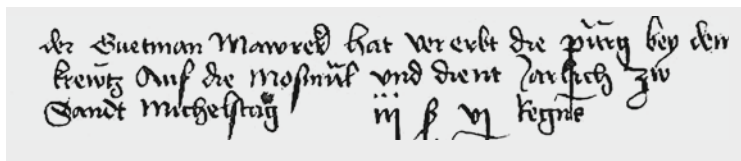 der Guetman Mawrer hat vererbt die pürg bey dem
krewtz Auf die Mosmül vnd dient Jarlich zw
Sandt Michelstag iii ß vi